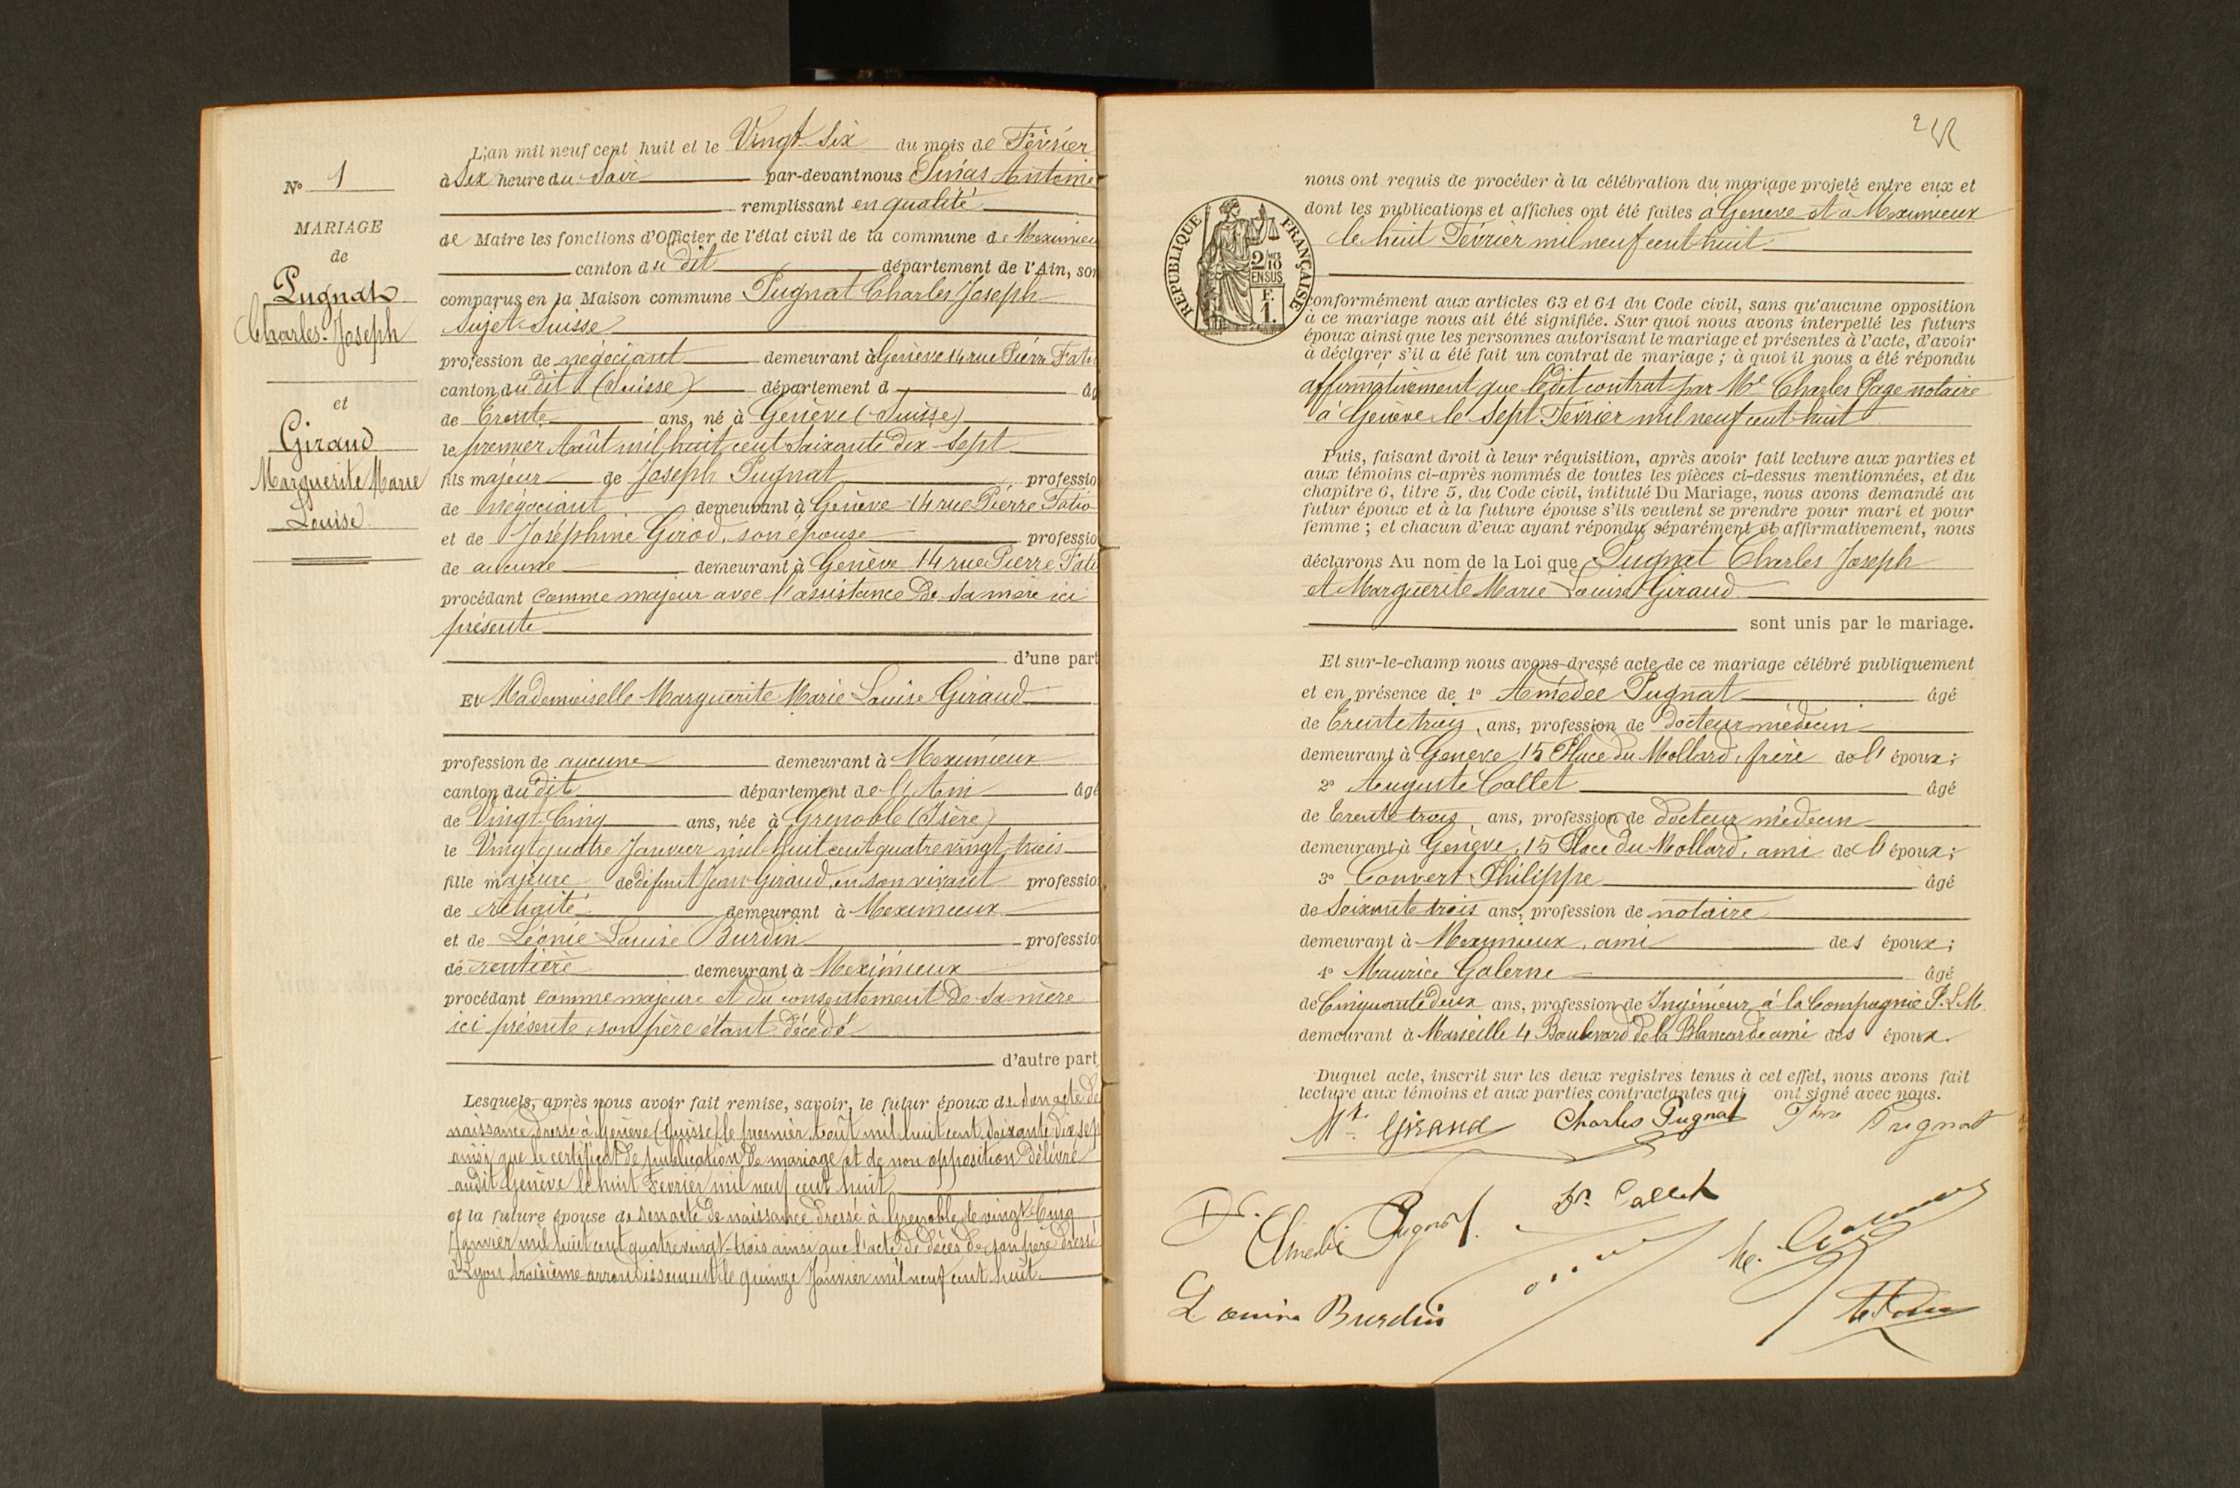 L'an mil neuf cent huit et le Vingt-Six du mois de Février
N° 1
à Six heure du Soir par-devant nous Antoine
remplissant en qualité
MARIAGE
de Maire les fonctions d'Officier de l'état civil de la commune de Meximieu
de
canton du dit département de l'Ain, son
Pugnat
comparus en la Maison commune Pugnat Charles Joseph
Charles-Joseph
Sujet Suisse
profession de négociant demeurant à Genève 14 rue Pierre Fatio
canton du dit (Suisse) département d âg
et
de Trente ans, né à Genève (Suisse)
Giraud
le premier Août mil huit cent soixante dix-sept
Marguerite Marie
fils majeur de Joseph Pugnat professio
Louise
de négociant demeurant à Genève 14 rue Pierre Fatio
et de Joséphine Girod, son épouse professio
de aucune demeurant à Genève 14 rue Pierre Fati
procédant comme majeur avec l'assistance de sa mère ici
présente
d'une part
Et Mademoiselle Marguerite Marie Louise Giraud
profession de aucune demeurant à Meximieux
canton du dit département de l'Ain âgé
de Vingt-Cinq ans, née à Grenoble (Isère)
le Vingt quatre Janvier mil huit cent quatre vingt-trois
fille majeure de défunt Jean Giraud, en son vivant professio
de retraité demeurant à Meximieux
et de Léonie Louise Burdin professio
de rentière demeurant à Meximieux
procédant comme majeure et du consentement de sa mère
ici présente, son père étant décédé
d'autre part
Lesquels, après nous avoir fait remise, savoir, le futur époux de son acte de
naissance dressé à Genève (Suisse) le premier Août mil huit cent soixante dix sep
ainsi que le certificat de publication de mariage et de non opposition délivré
audit Genève le huit Février mil neuf cent huit
et la future épouse de son acte de naissance dressé à Grenoble le vingt-Cinq
Janvier mil huit cent quatre vingt-trois ainsi que l'acte de décès de son père dressé
à Lyon troisième arrondissement le quinze Janvier mil neuf cent huit
2
nous ont requis de procéder à la célébration du mariage projeté entre eux et
dont les publications et affiches ont été faites à Genève et à Meximieux
le huit Février mil neuf cent huit
REPUBLIQUE FRANÇAISE
2/10 EN SUS
F. 1.
conformément aux articles 63 et 64 du Code civil, sans qu'aucune opposition
à ce mariage nous ait été signifiée. Sur quoi nous avons interpellé les futurs
époux ainsi que les personnes autorisant le mariage et présentes à l'acte, d'avoir
à déclarer s'il a été fait un contrat de mariage ; à quoi il nous a été répondu
affirmativement que ledit contrat par Me Charles Page notaire
à Genève le Sept Février mil neuf cent huit
Puis, faisant droit à leur réquisition, après avoir fait lecture aux parties et
aux témoins ci-après nommés de toutes les pièces ci-dessus mentionnées, et du
chapitre 6, titre 5, du Code civil, intitulé Du Mariage, nous avons demandé au
futur époux et à la future épouse s'ils veulent se prendre pour mari et pour
femme ; et chacun d'eux ayant répondu séparément et affirmativement, nous
déclarons Au nom de la Loi que Pugnat Charles Joseph
et Marguerite Marie Louise Giraud
sont unis par le mariage.
Et sur-le-champ nous avons dressé acte de ce mariage célébré publiquement
et en présence de 1° Amédée Pugnat âgé
de Trente trois, ans, profession de docteur médecin
demeurant à Genève, 15 Place du Mollard, frère de l' époux ;
2° Auguste Collet âgé
de Trente trois, ans, profession de docteur médecin
demeurant à Genève, 15 Place du Mollard, ami de l' époux ;
3° Convert Philippe âgé
de Soixante trois ans, profession de notaire
demeurant à Meximieux, ami des époux ;
4° Maurice Galerne âgé
de Cinquante deux ans, profession de Ingénieur à la Compagnie P.L.M.
demeurant à Marseille 4 Boulevard de la Blancarde ami des époux.
Duquel acte, inscrit sur les deux registres tenus à cet effet, nous avons fait
lecture aux témoins et aux parties contractantes qui ont signé avec nous.
Mte Giraud Charles Pugnat Pugnat
Dr. Amédée Pugnat Dr. Collet
Burdin